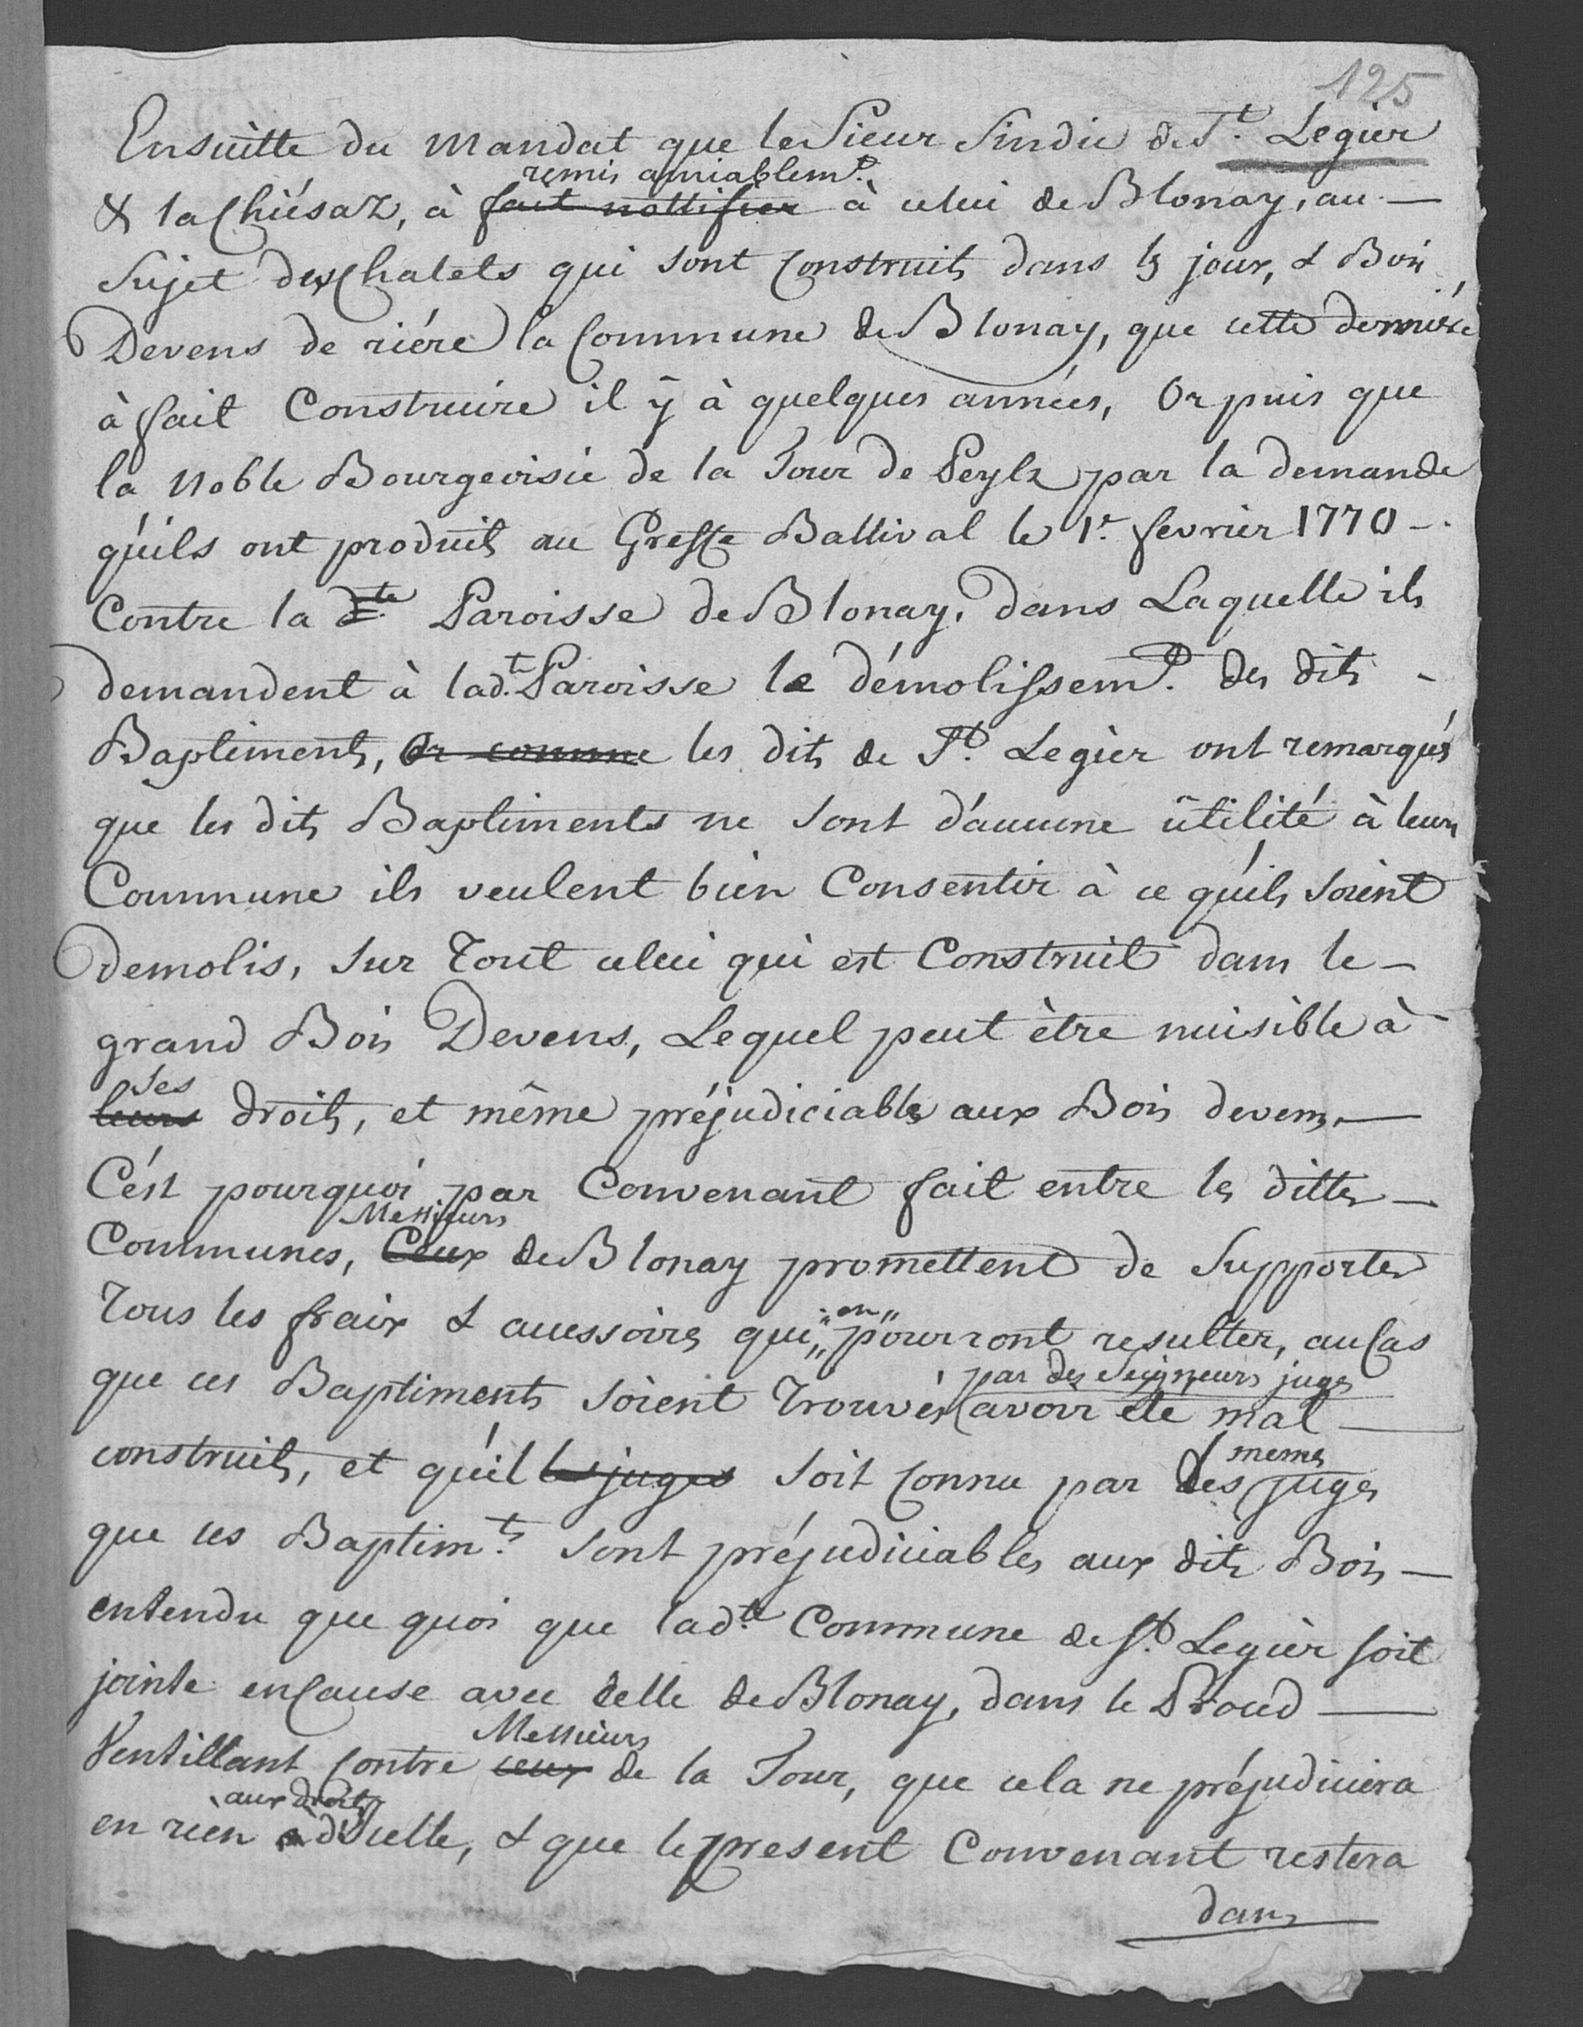 125
Ensuitte du Mandat que le Sieur Sindic de St. Legier
remis amiablemt.
& la Chiésaz, à fait nottifier à celui de Blonay, au
Sujet des Chalets qui sont Construits dans les joux, & Bois
Devens de riére la Commune de Blonay, que cette derniére
à fait Construire il ÿ à quelques années, Or puis que
la Noble Bourgeoisie de la Tour de Peylz par la demande
qúils ont produit au Greffe Ballival le 1r. fevrier 1770
Contre la dte. Paroisse de Blonay, dans Laquelle ils
demandent à ladte. Paroisse le démolissemt. des dits
Baptiments, Or comme les dits de St. Legier ont remarqués
que les dits Baptiments ne sont d'aucune ütilité à leur
Commune ils veulent bien Consentir à ce qúils soient
Demolis, sur Tout celui qui est Construit dans le
grand Bois Devens, Lequel peut être nuisible à
ses
leurs droits, et même préjudiciable aux Bois devens,
Cést pourquoi par Convenant fait entre les dittes
Messieurs
Communes, Ceux de Blonay promettent de Supporter
en
Tous les fraix & accessoires qui pourront resulter, au Cas
par des Seigneurs juges
que ces Baptiments soient Trouvés avoir été mal
construits, et qúil les juges soit Connu par des juges
memes
que ces Baptimts. sont préjudiciables aux dits Bois
entendu que quoi que ladte. Commune de St. Legier soit
jointe en Cause avec Celle de Blonay, dans le Proud
Messieurs
Ventillant Contre ceux de la Tour, que cela ne préjudiciera
aux droits
en rien à d'icelle, & que le present Convenant restera
dans